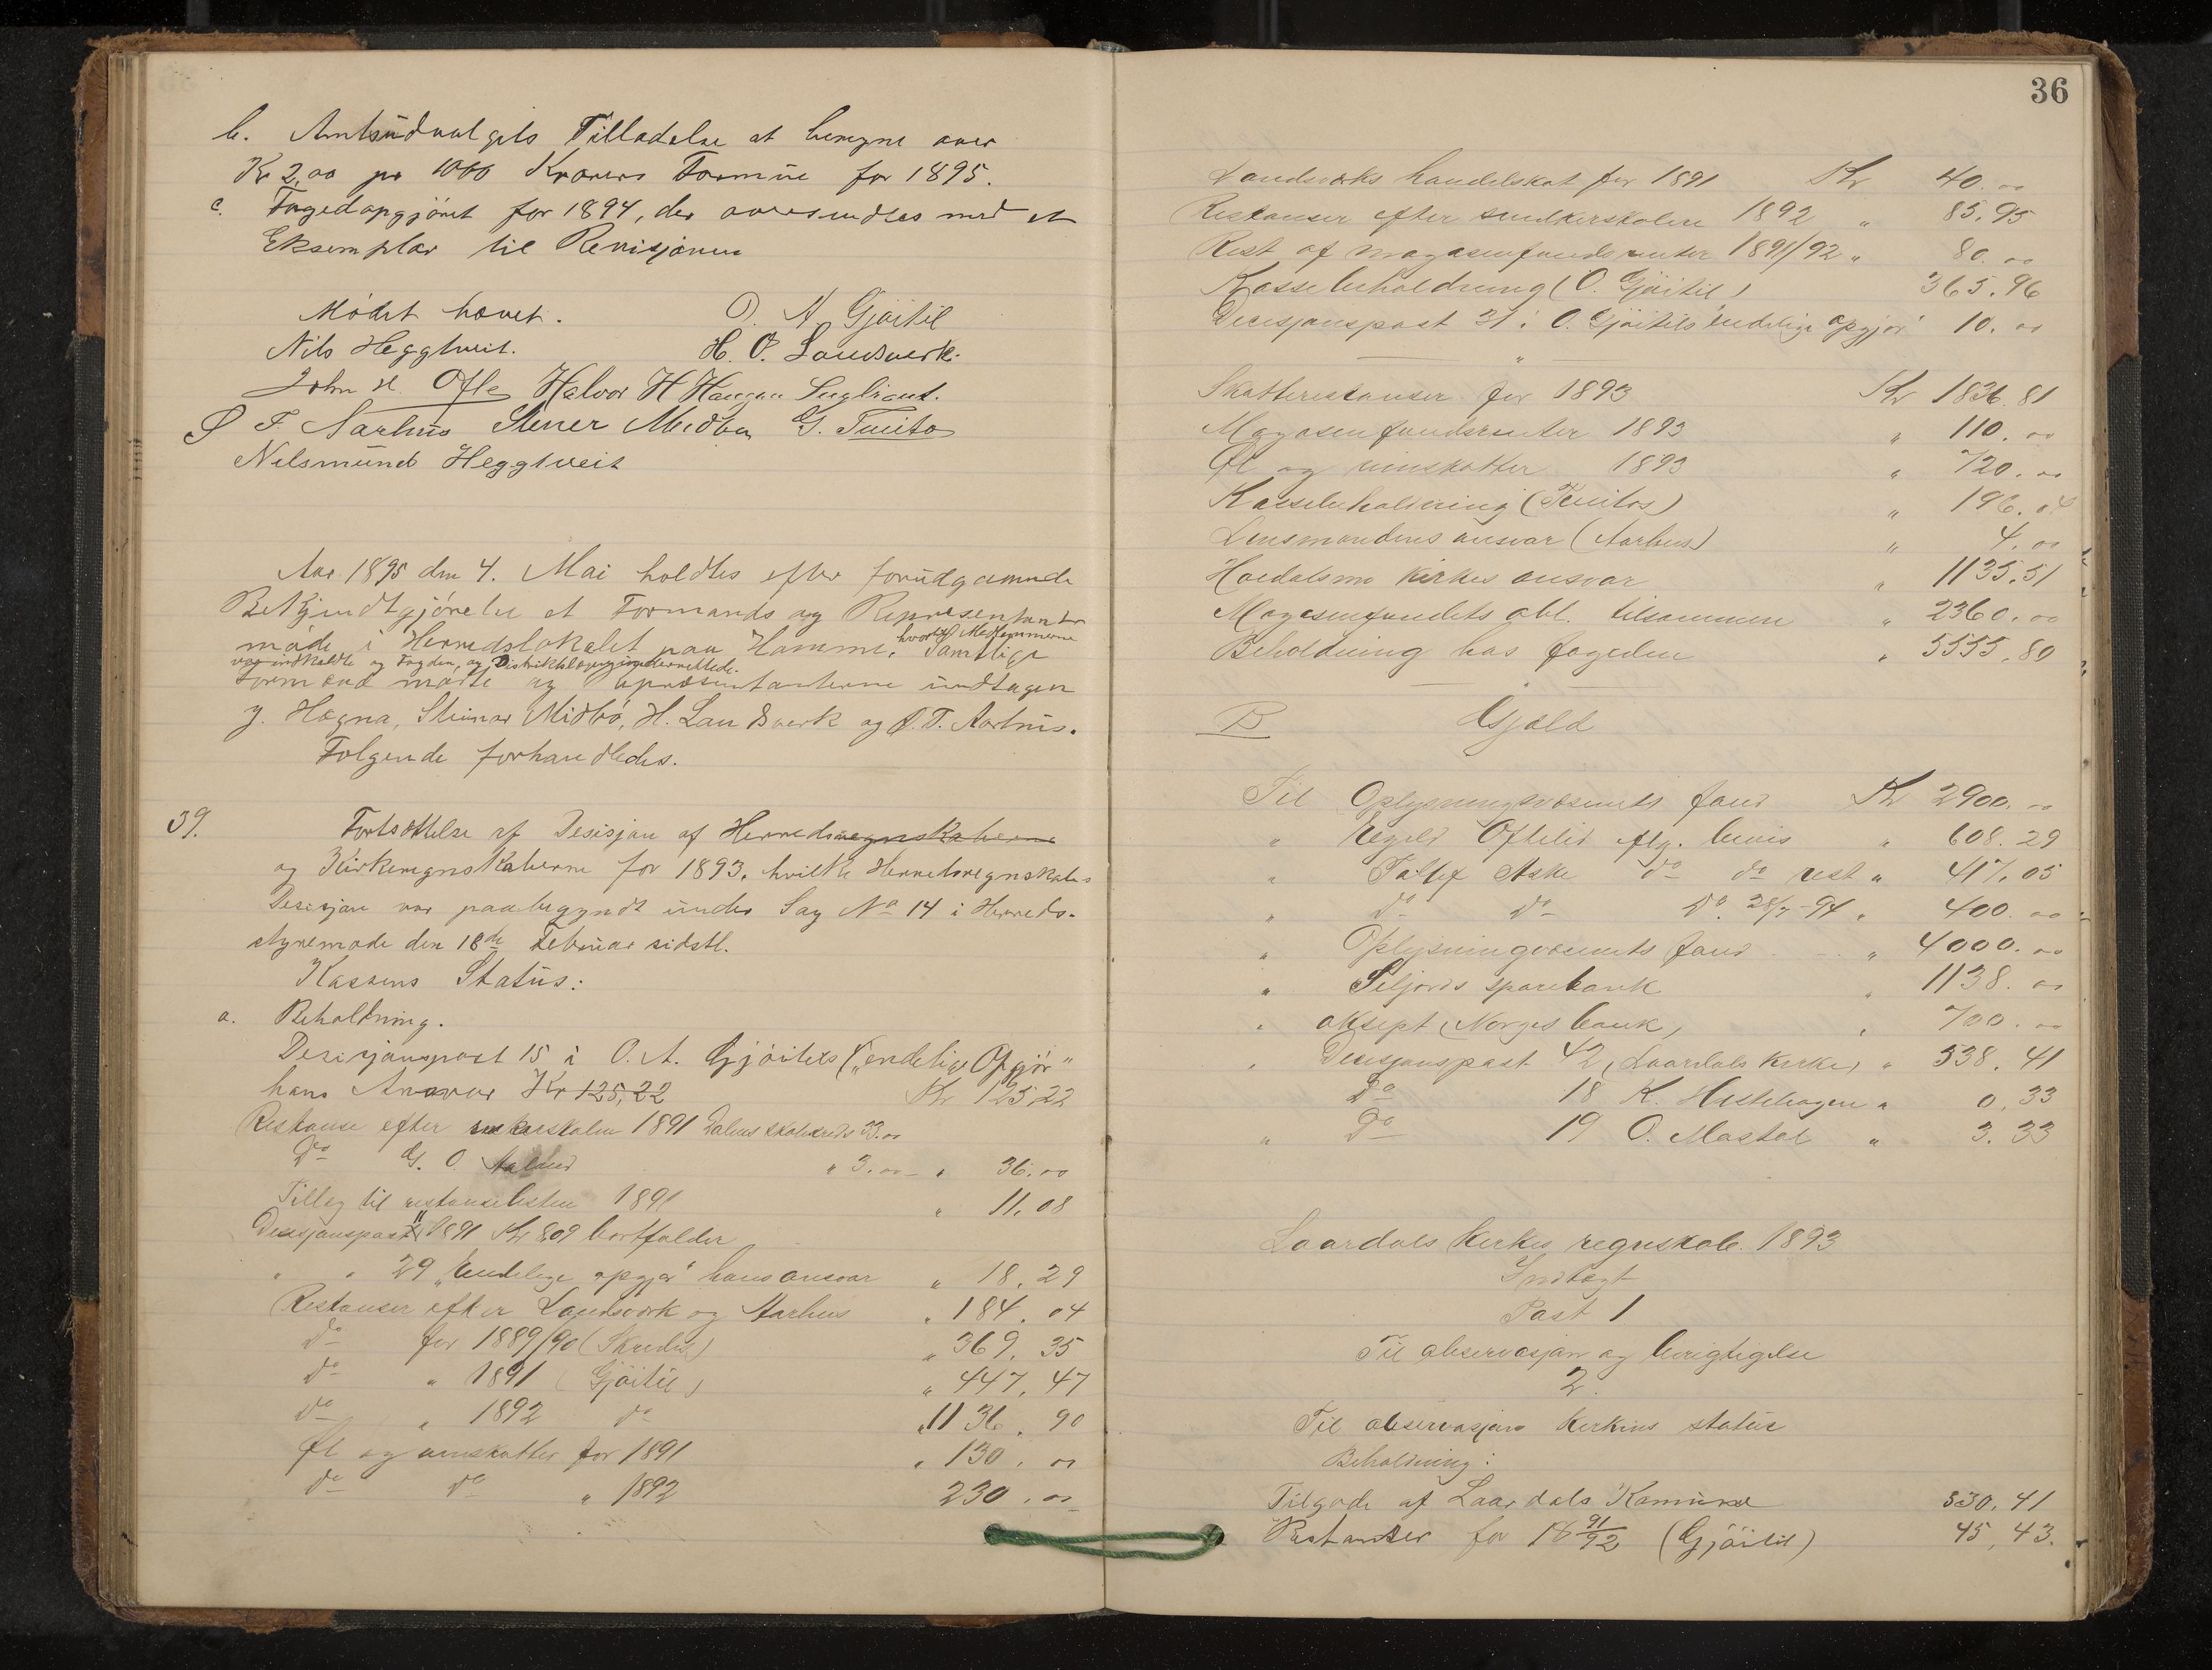 b. Amtsudvalgets Tilladelse at beregne over
Kr 2,00 pr 1000 Kroners Formue for 1895.
c. Fogedopgjöret for 1894, der oversendtes med et
Eksemplar til Revisjonen
Mödet hævet.
O. A Gjöitil
Nils Heggtveit.
H. O. Landsverk.
John H. Ofte Halvor H Haugen
T. Aarhus Stener Midbø G. Tveito
Nilsmund Heggtveit
Aar 1895 den 4. Mai holdtes efter forudgaaende
Bekjendtgjörelse et Formands og Representant
möde i Herredslokalet paa Hamme, hvortil Medlemmerne
var indkaldte og Fogden, og Samtlige
Formænd mødte og Representanterne undtagen
Hægna, Steinar Midbö, H. Landsverk og T. Aarhus.
Følgende forhandledes.
39. Fortsættelse af Desisjon af Herredsregnskaberne
og Kirkeregnskaberne for 1893, hvilke Herredsregnskabs
Desisjon var paabegyndt under Sag No 14 i Herreds-
styremøde den 18de Februar sidstl.
Kassens Status:
a. Beholdning.
Desisjonspost 15 i O. A. Gjöitils („endelige Opgjör"
hans Ansvar Kr 125,22 Kr 125,22
Restanse efter 1891 Dalens skolekreds 33.00
Do G. O. " 3.00 " 36.00
Tillæg til restanselisten 1891 " 11.08
Desisjonspost 11 1891 Kr 809 bortfalder
" " 29 „Endelige opgjør" hans ansvar " 18.29
Restanser efter Landsverk og Aarhus " 184.04
Do for 1889/90 " 369.35
Do " 1891 (Gjöitil) " 447.47
Do " 1892 Do " 1136.90
Øl og vinskatter for 1891 " 130.00
Do Do " 1892 230.00
36
Landsværks handelskat for 1891 Kr 40.00
Restanser efter 1892 " 85.95
Rest af magasenfondsrenter 1891/92 " 80.00
Kassebeholdning (O. Gjöitil) 365.96
Decisjonspost 31 i O. Gjöitils endelige opgjør 10.00
"
Skatterestanser for 1893 Kr 1836.81
Magasenfondsrenter 1893 " 110.00
Øl og vinskatter 1893 " 720.00
Kassebeholdning (Tveitos) " 196.04
Lensmandens ansvar (Aarhus) " 4.00
Høidalsmo kirkes ansvar " 1135.51
Magasenfondets obl. tilsammen " 2360.00
Beholdning hos fogeden " 5555.80
B Gjæld
Til Oplysningsvæsenets fond Kr 2900.00
" Eegild Oftelid eftg. bevis " 608.29
" Tallef Aske do do rest " 417.05
" do do do 28/7-94 " 400.00
" Oplysningvæsenets fond " 4000.00
" Siljords sparebank " 1138.00
" aksept (Norges bank) " 700.00
" Decisjonspost 42 (Laardals kirke) " 538.41
Do 18 K. Hestehagen " 0.33
" Do 19 O. Mastol " 3.33
Laardals kirkes regnskab 1893
Indtægt
Post 1
Til observasjon og berigtigelse
2.
Til observasjon kirkens status
Beholdning:
Tilgode af Laardals Kommune 530.41
Restanser for 18 91/92 (Gjöitil) 45,43.